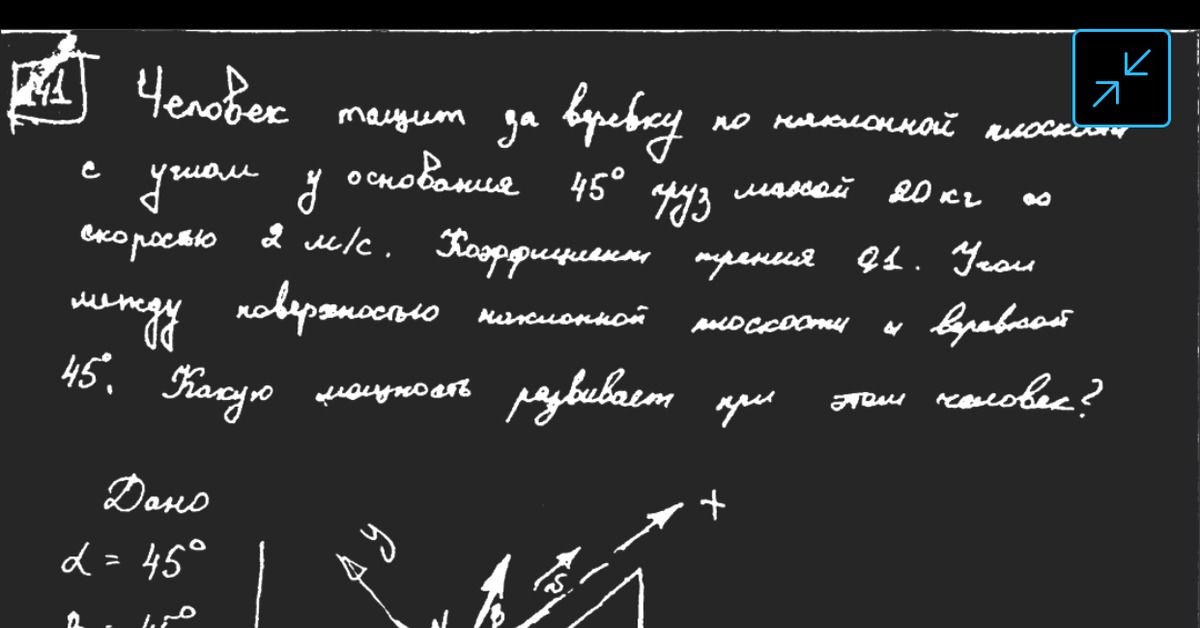 41 Человек тащит за веревку по наклонной
с углом у основания 45° груз массой 20 кг со
скоростью 2 м/с. Коэффициент трения 0,1. Угол
между поверхностью наклонной плоскости и веревкой
45°. Какую мощность развивает при этом человек?
Дано
y +
α = 45°